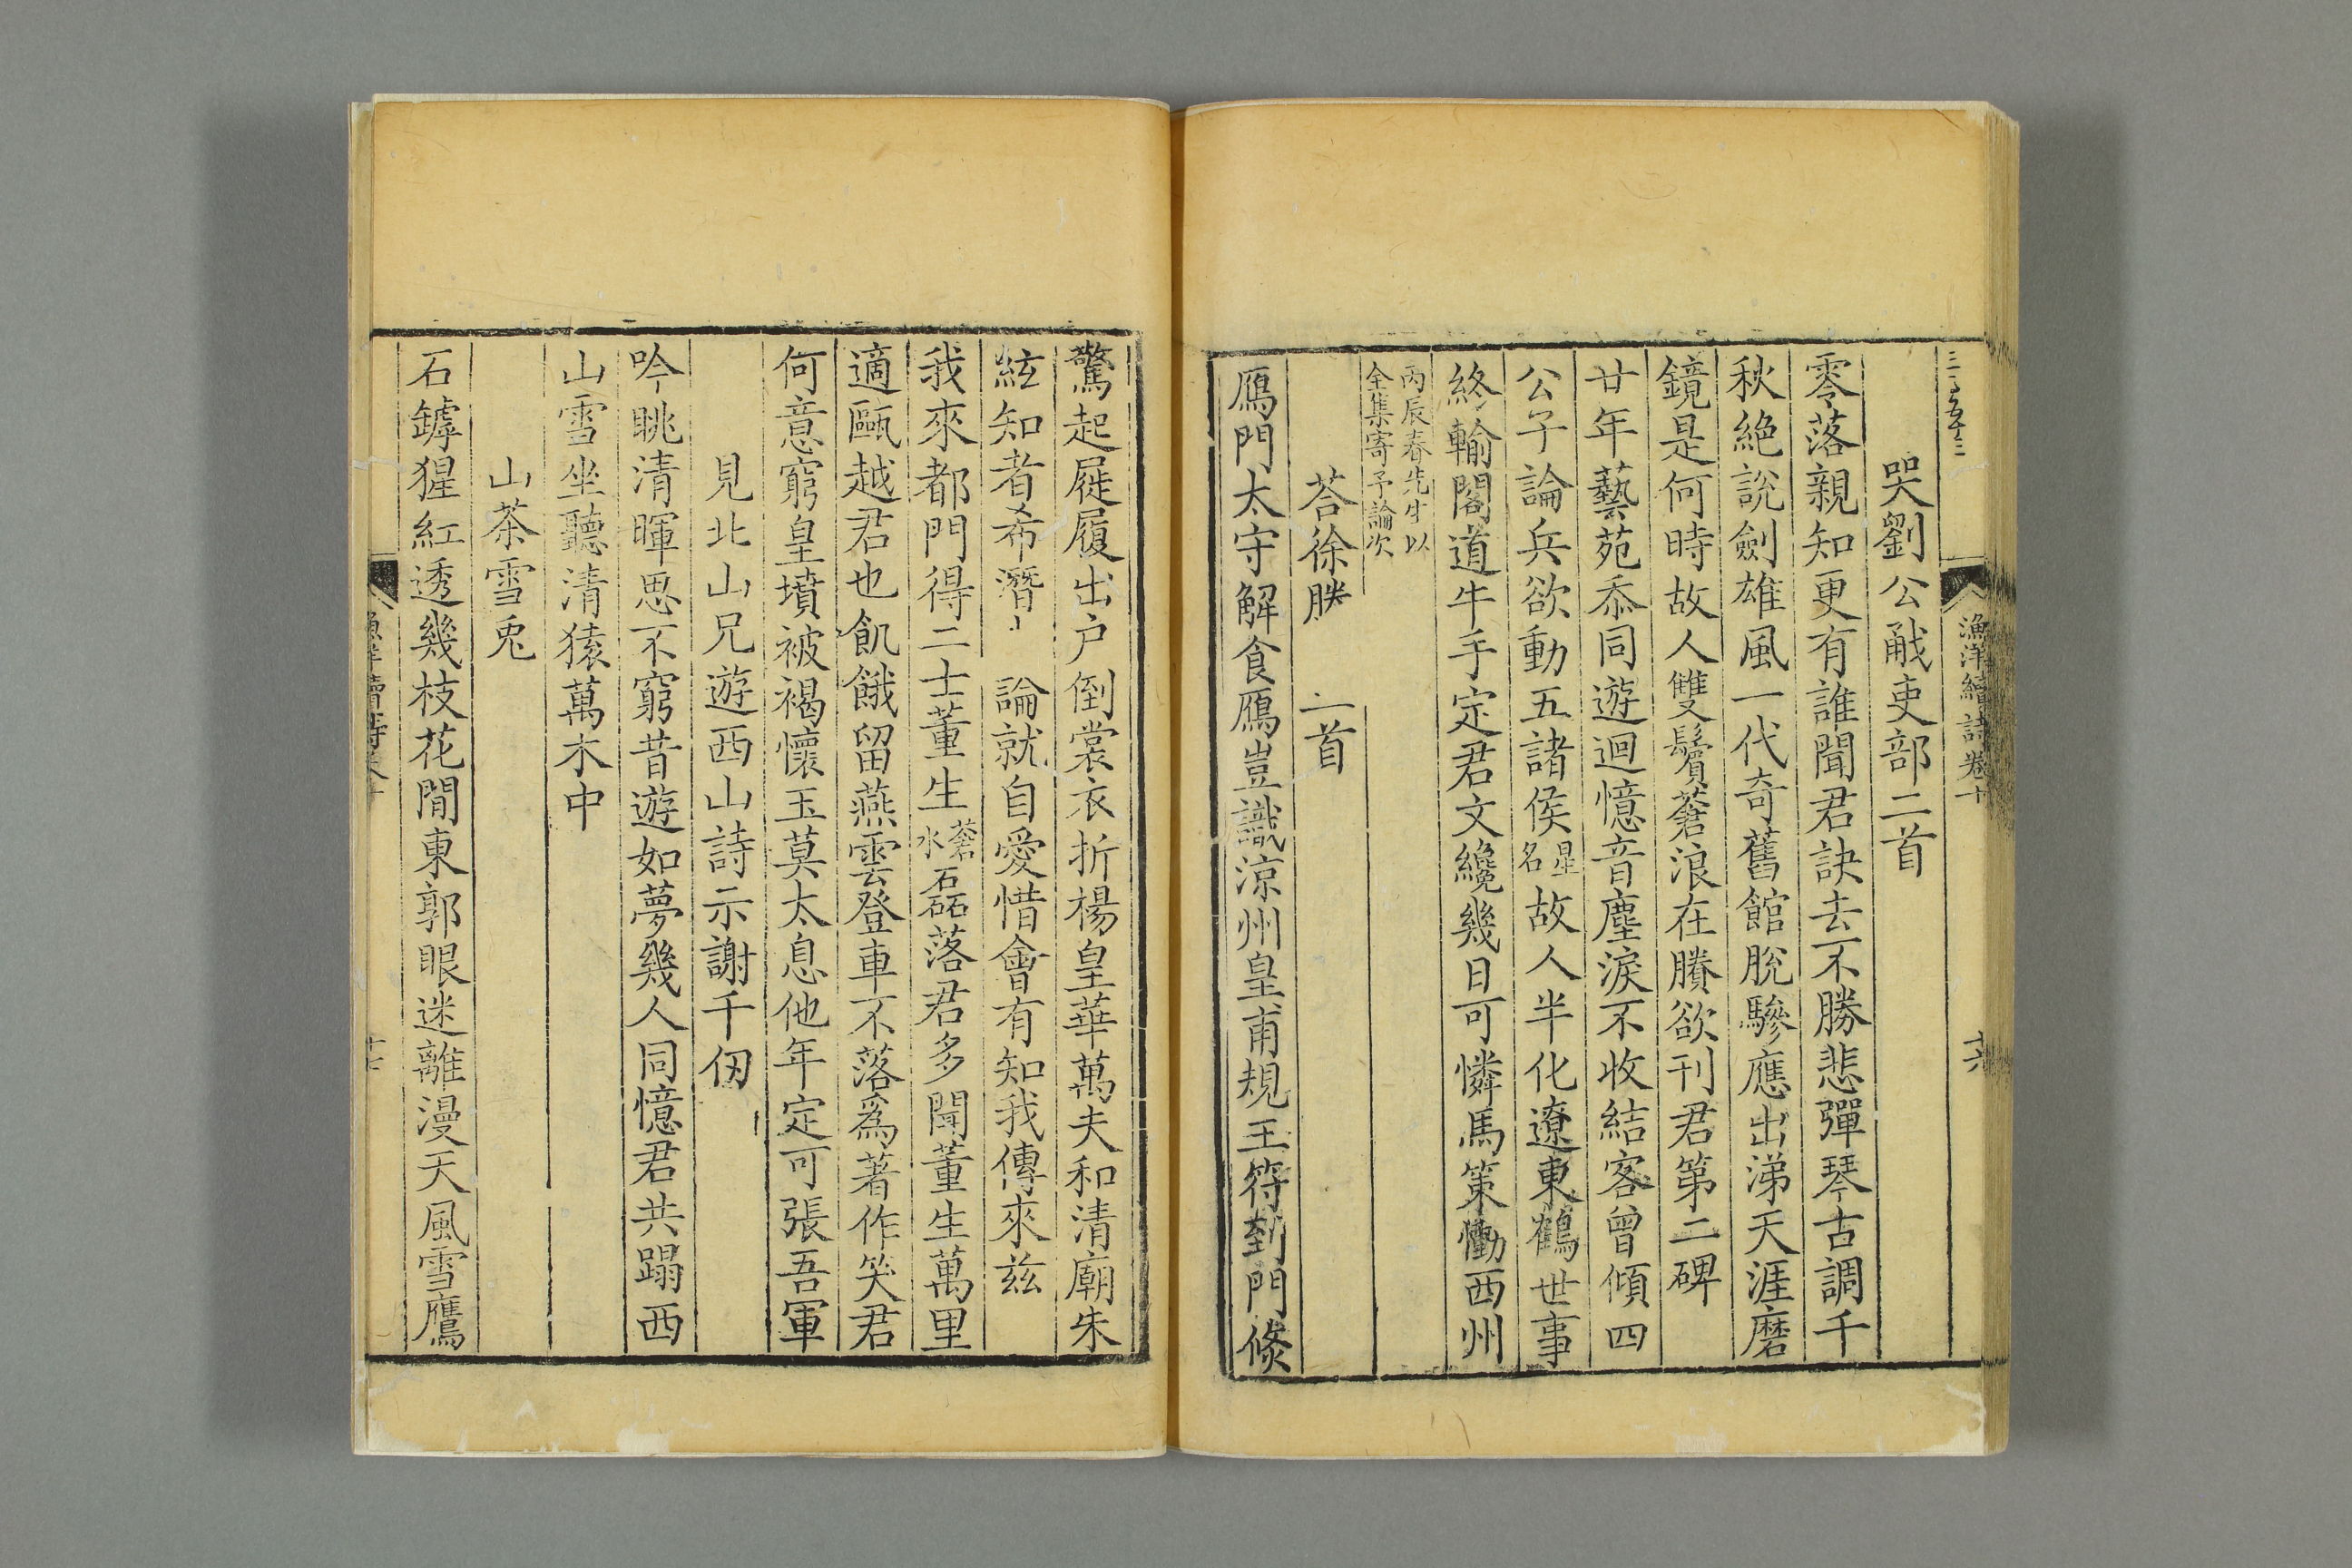 漁洋續詩卷十
哭劉公㦷吏部二首
零落親知更有誰聞君訣去不勝悲彈琴古調千
秋絶說劍雄風一代奇舊館脫驂應出涕天涯磨
鏡是何時故人雙鬢蒼浪在賸欲刊君第二碑
廿年藝苑忝同遊迴憶音塵淚不收結客曾傾四
公子論兵欲動五諸侯星名故人半化遼東鶴世事
終輸閣道牛手定君文纔幾日可憐馬策慟西州
丙辰春先生以
全集寄予論次
荅徐勝 二首
鴈門太守解食鴈豈識涼州皇甫規王符到門倐
驚起屣履出户倒裳衣折楊皇華萬夫和清廟朱
絃知者希潛 論就自愛惜會有知我傳來兹
我來都門得二士董生蒼水磊落君多聞董生萬里
適甌越君也飢餓留燕雲登車不落爲著作笑君
何意窮皇墳被褐懷玉莫太息他年定可張吾軍
見北山兄遊西山詩示謝千仞
吟眺清暉思不窮昔遊如夢幾人同憶君共蹋西
山雪坐聽清猿萬木中
山茶雪兎
石罅猩紅透幾枝花閒東郭眼迷離漫天風雪鷹